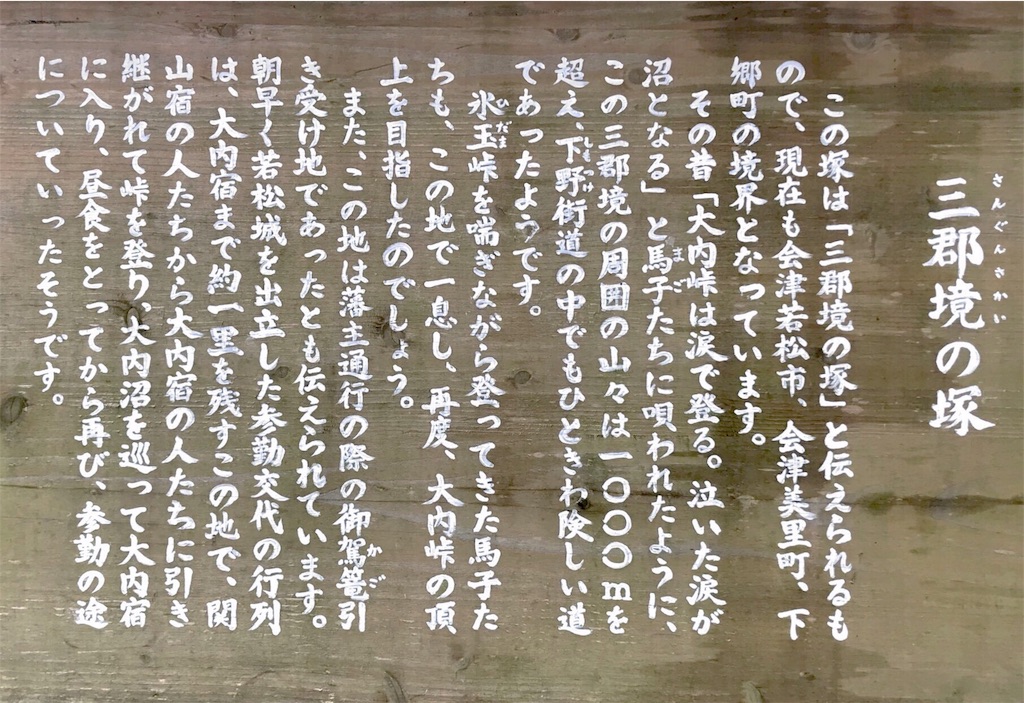 三郡境の塚
さんぐんさかい
この塚は「三郡境の塚」と伝えられるも
ので、現在も会津若松市、会津美里町、下
郷町の境界となっています。
その昔「大内峠は涙で登る。泣いた涙が
沼となる」と馬子たちに唄われたように、
まご
この三郡境の周囲の山々は一〇〇〇mを
超え、下野街道の中でもひときわ険しい道
しもつけ
であったようです。
氷玉峠を喘ぎながら登ってきた馬子た
ひだま
ちも、この地で一息し、再度、大内峠の頂
上を目指したのでしょう。
また、この地は藩主通行の際の御駕篭引
かご
き受け地であったとも伝えられています。
朝早く若松城を出立した参勤交代の行列
は、大内宿まで約一里を残すこの地で、関
山宿の人たちから大内宿の人たちに引き
継がれて峠を登り、大内沼を巡って大内宿
に入り、昼食をとってから再び、参勤の途
についていったそうです。